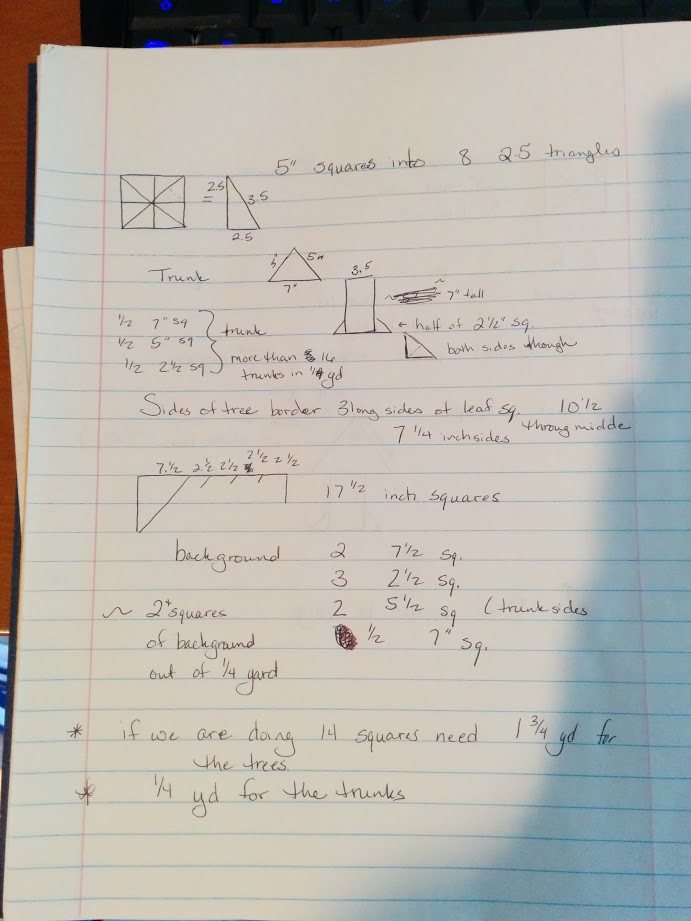 5" squares into 8 2.5 triangles
2.5
= 3.5
2.5
5" 5"
Trunk 7" 3.5
7" tall
1/2 7" sq
1/2 5" sq trunk
1/2 2 1/2 sq
← half of 2 1/2" sq.
both sides though
more than 16
trunks in 1/4 yd
Sides of tree border 3 long sides of leaf sq. 10 1/2
7 1/4 inch sides throug midde
7 1/2 2 1/2 2 1/2 2 1/2 2 1/2
17 1/2 inch squares
background 2 7 1/2 sq.
3 2 1/2 sq.
~ 2+ squares 2 5 1/2 sq (trunk sides
of background 1/2 7" sq.
out of 1/4 yard
* if we are doing 14 squares need 1 3/4 yd for
the trees.
* 1/4 yd for the trunks